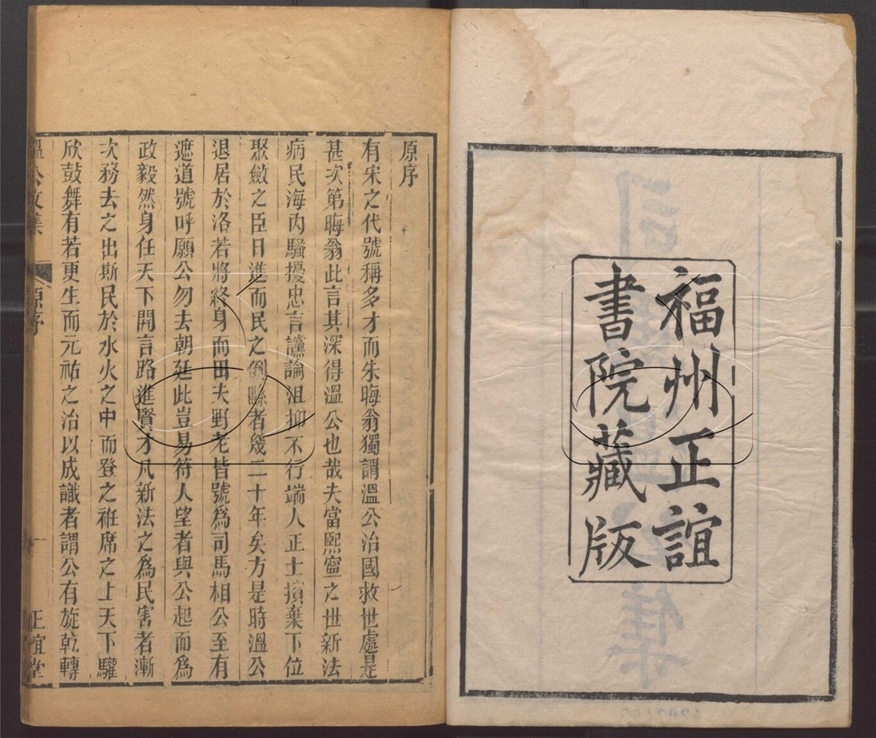 福州正誼
書院藏版
原序
有宋之代號稱多才而朱晦翁獨謂溫公治國救世處是
甚次第晦翁此言其深得溫公也哉夫當熙寧之世新法
病民海內騷擾忠言讜論沮抑不行端人正士擯棄下位
聚斂之臣日進而民之倒縣者幾二十年矣方是時溫公
退居於洛若將終身而田夫野老皆號為司馬相公至有
遮道號呼願公勿去朝廷此豈易符人望者與公起而為
政毅然身任天下開言路進賢才凡新法之為民害者漸
次務去之出斯民於水火之中而登之袵席之上天下驩
欣鼓舞有若更生而元祐之治以成識者謂公有旋乾轉
溫公文集
原序
一
正誼堂